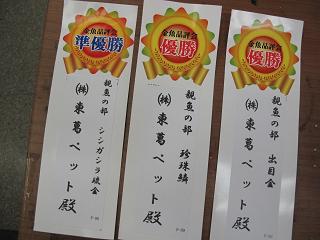 金魚品評会
準優勝
親魚の部 シシガシラ琉金
㈱東葛ペット殿
金魚品評会
優勝
親魚の部 珍珠鱗
㈱東葛ペット殿
金魚品評会
優勝
親魚の部 出目金
㈱東葛ペット殿